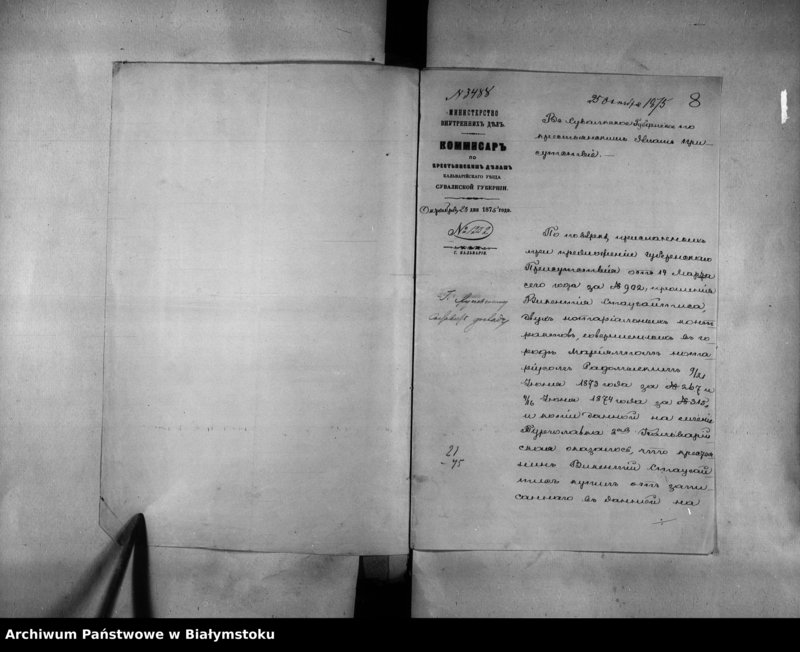 № 3488
МИНИСТЕРСТВО
ВНУТРЕННИХЪ ДѢЛЪ.
КОММИСАРЪ
ПО
КРЕСТЬЯНСКИМЪ ДѢЛАМЪ
КАЛЬВАРІЙСКАГО УѢЗДА
СУВАЛКСКОЙ ГУБЕРНІИ.
дня 1875 года.
№ 1212
Г. КАЛЬВАРІЯ.
21
75
1875 8
Въ Сувалкское Губернское по
крестьянскимъ дѣламъ При-
сутствіе.
По повѣркѣ, присланныхъ
при предложеніи Губернскаго
Присутствія отъ 19 Марта
сего года за № 902, прошенія
Викентія Стаугайтиса,
двухъ нотаріальныхъ конт
рактовъ, совершенныхъ въ го
родѣ Маріямполѣ нота
ріусомъ 9/21
Іюня 1873 года за № 267 и
4/16 Іюня 1874 года за № 315,
и копіи данной на имѣніе
скаго оказалось, что кресть
янинъ Викентій Стаугай
тисъ купилъ отъ запи
саннаго въ данной на